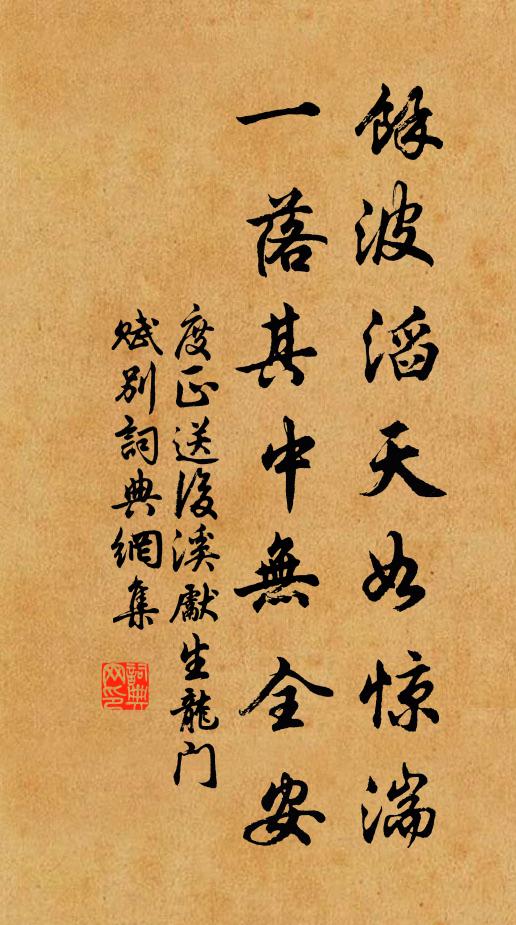 餘波滔天如惊湍
一落其中無全安
度正送後溪獻生龍门
賦别詞典網集
詞典网印